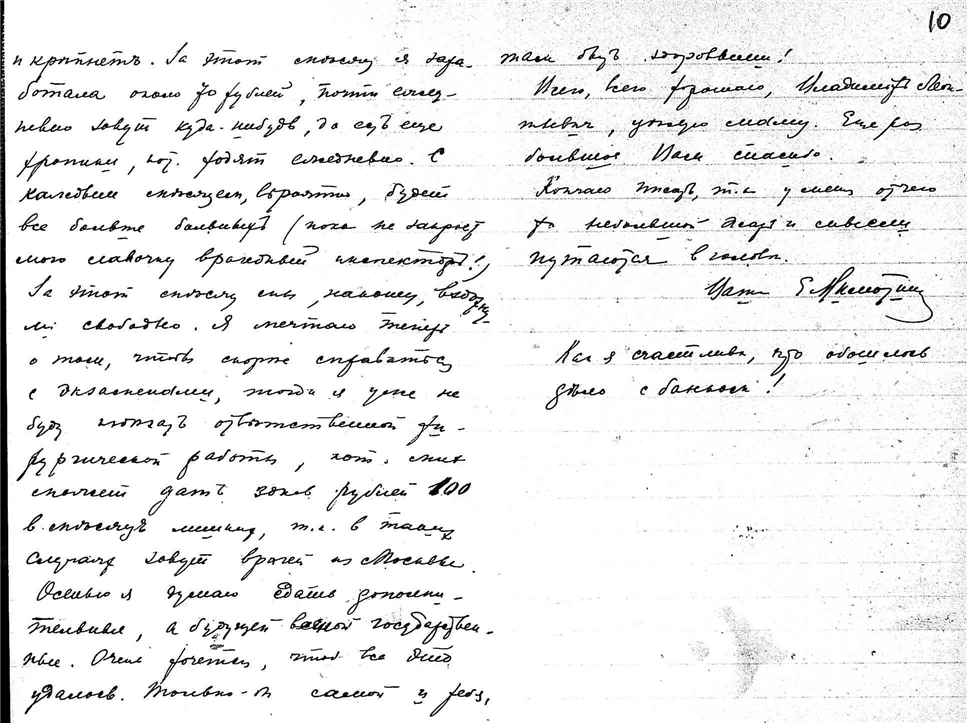 10
и крѣпнетъ. За этот мѣсяц я зара-
ботала около 70 рублей, почти ежед-
невно зовут куда-нибудь, да едъ еще
хроники, кот. ходят ежедневно. С
каждым мѣсяцем, вѣроятно, будет
все больше больныхъ (пока не закроет
мою лавочку врачебный инспекторъ!)
За этот мѣсяц мы, наконец, вздохну-
ли свободно. Я мечтаю теперь
о том, чтобы скорѣе справиться
с экзаменами, тогда я уже не
буду отвѣтственной хи-
рургической работы, кот. мнѣ
может дать здѣсь рублей 100
в мѣсяцъ лишних, т.к. в таких
случаях зовут врачей из Москвы.
Осенью я думаю сдать дополни-
тельные, а будущей весной государствен-
ные. Очень хочется, чтоб все это
удалось. Только-бы самой и ребя,
там быть здоровыми!
Всего, всего хорошаго, Владимір Леон-
тьевич, цѣлую маму. Еще раз
большое Вам спасибо.
Кончаю писать, т.к. у меня отчего
то небольшой жар и мысли
путаются в головѣ.
Ваша Е.
Как я счастлива, что обошлось
дѣло с банком!